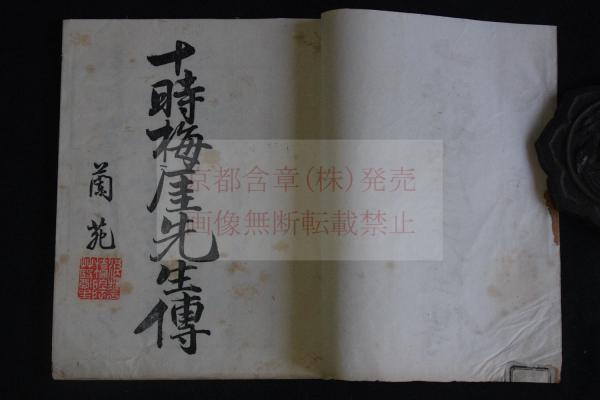 十時梅厓先生傳
蘭苑
京都含章(株)発売
画像無断転載禁止